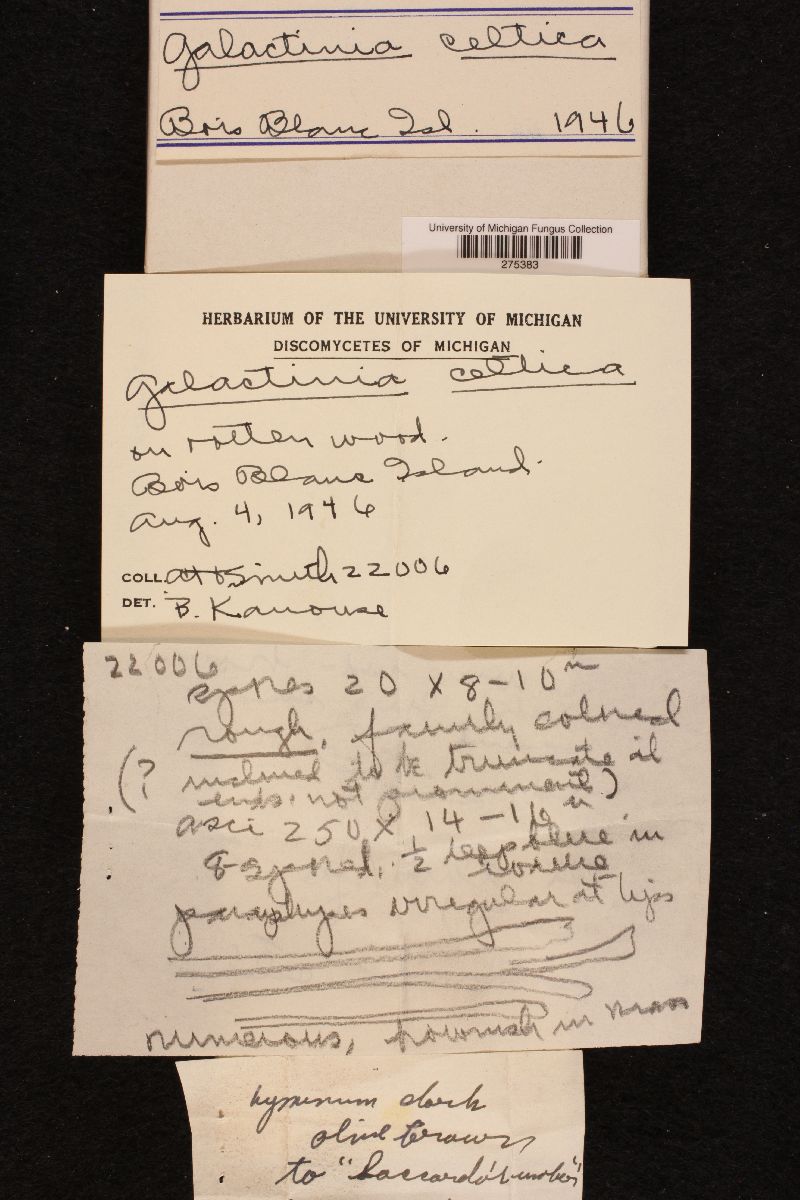 Galactinia celtica
Bois Blanc Isl. 1946
University of Michigan Fungus Collection
275383
HERBARIUM OF THE UNIVERSITY OF MICHIGAN
DISCOMYCETES OF MICHIGAN
Galactinia celtica
on rotten wood.
Bois Blanc Island.
Aug. 4, 1946
COLL. AH Smith 22006
DET. B. Kanouse
22006
spores 20 X 8-10 u
rough, faintly colored
(? inclined to be truncate at
ends. not prominent)
asci 250 X 14-16 u
8-spored. 1/2 blue in
iodine
paraphyses irregular at tips
numerous, brownish in mass
hymenium dark
olive brown
to "Saccardo's umber"